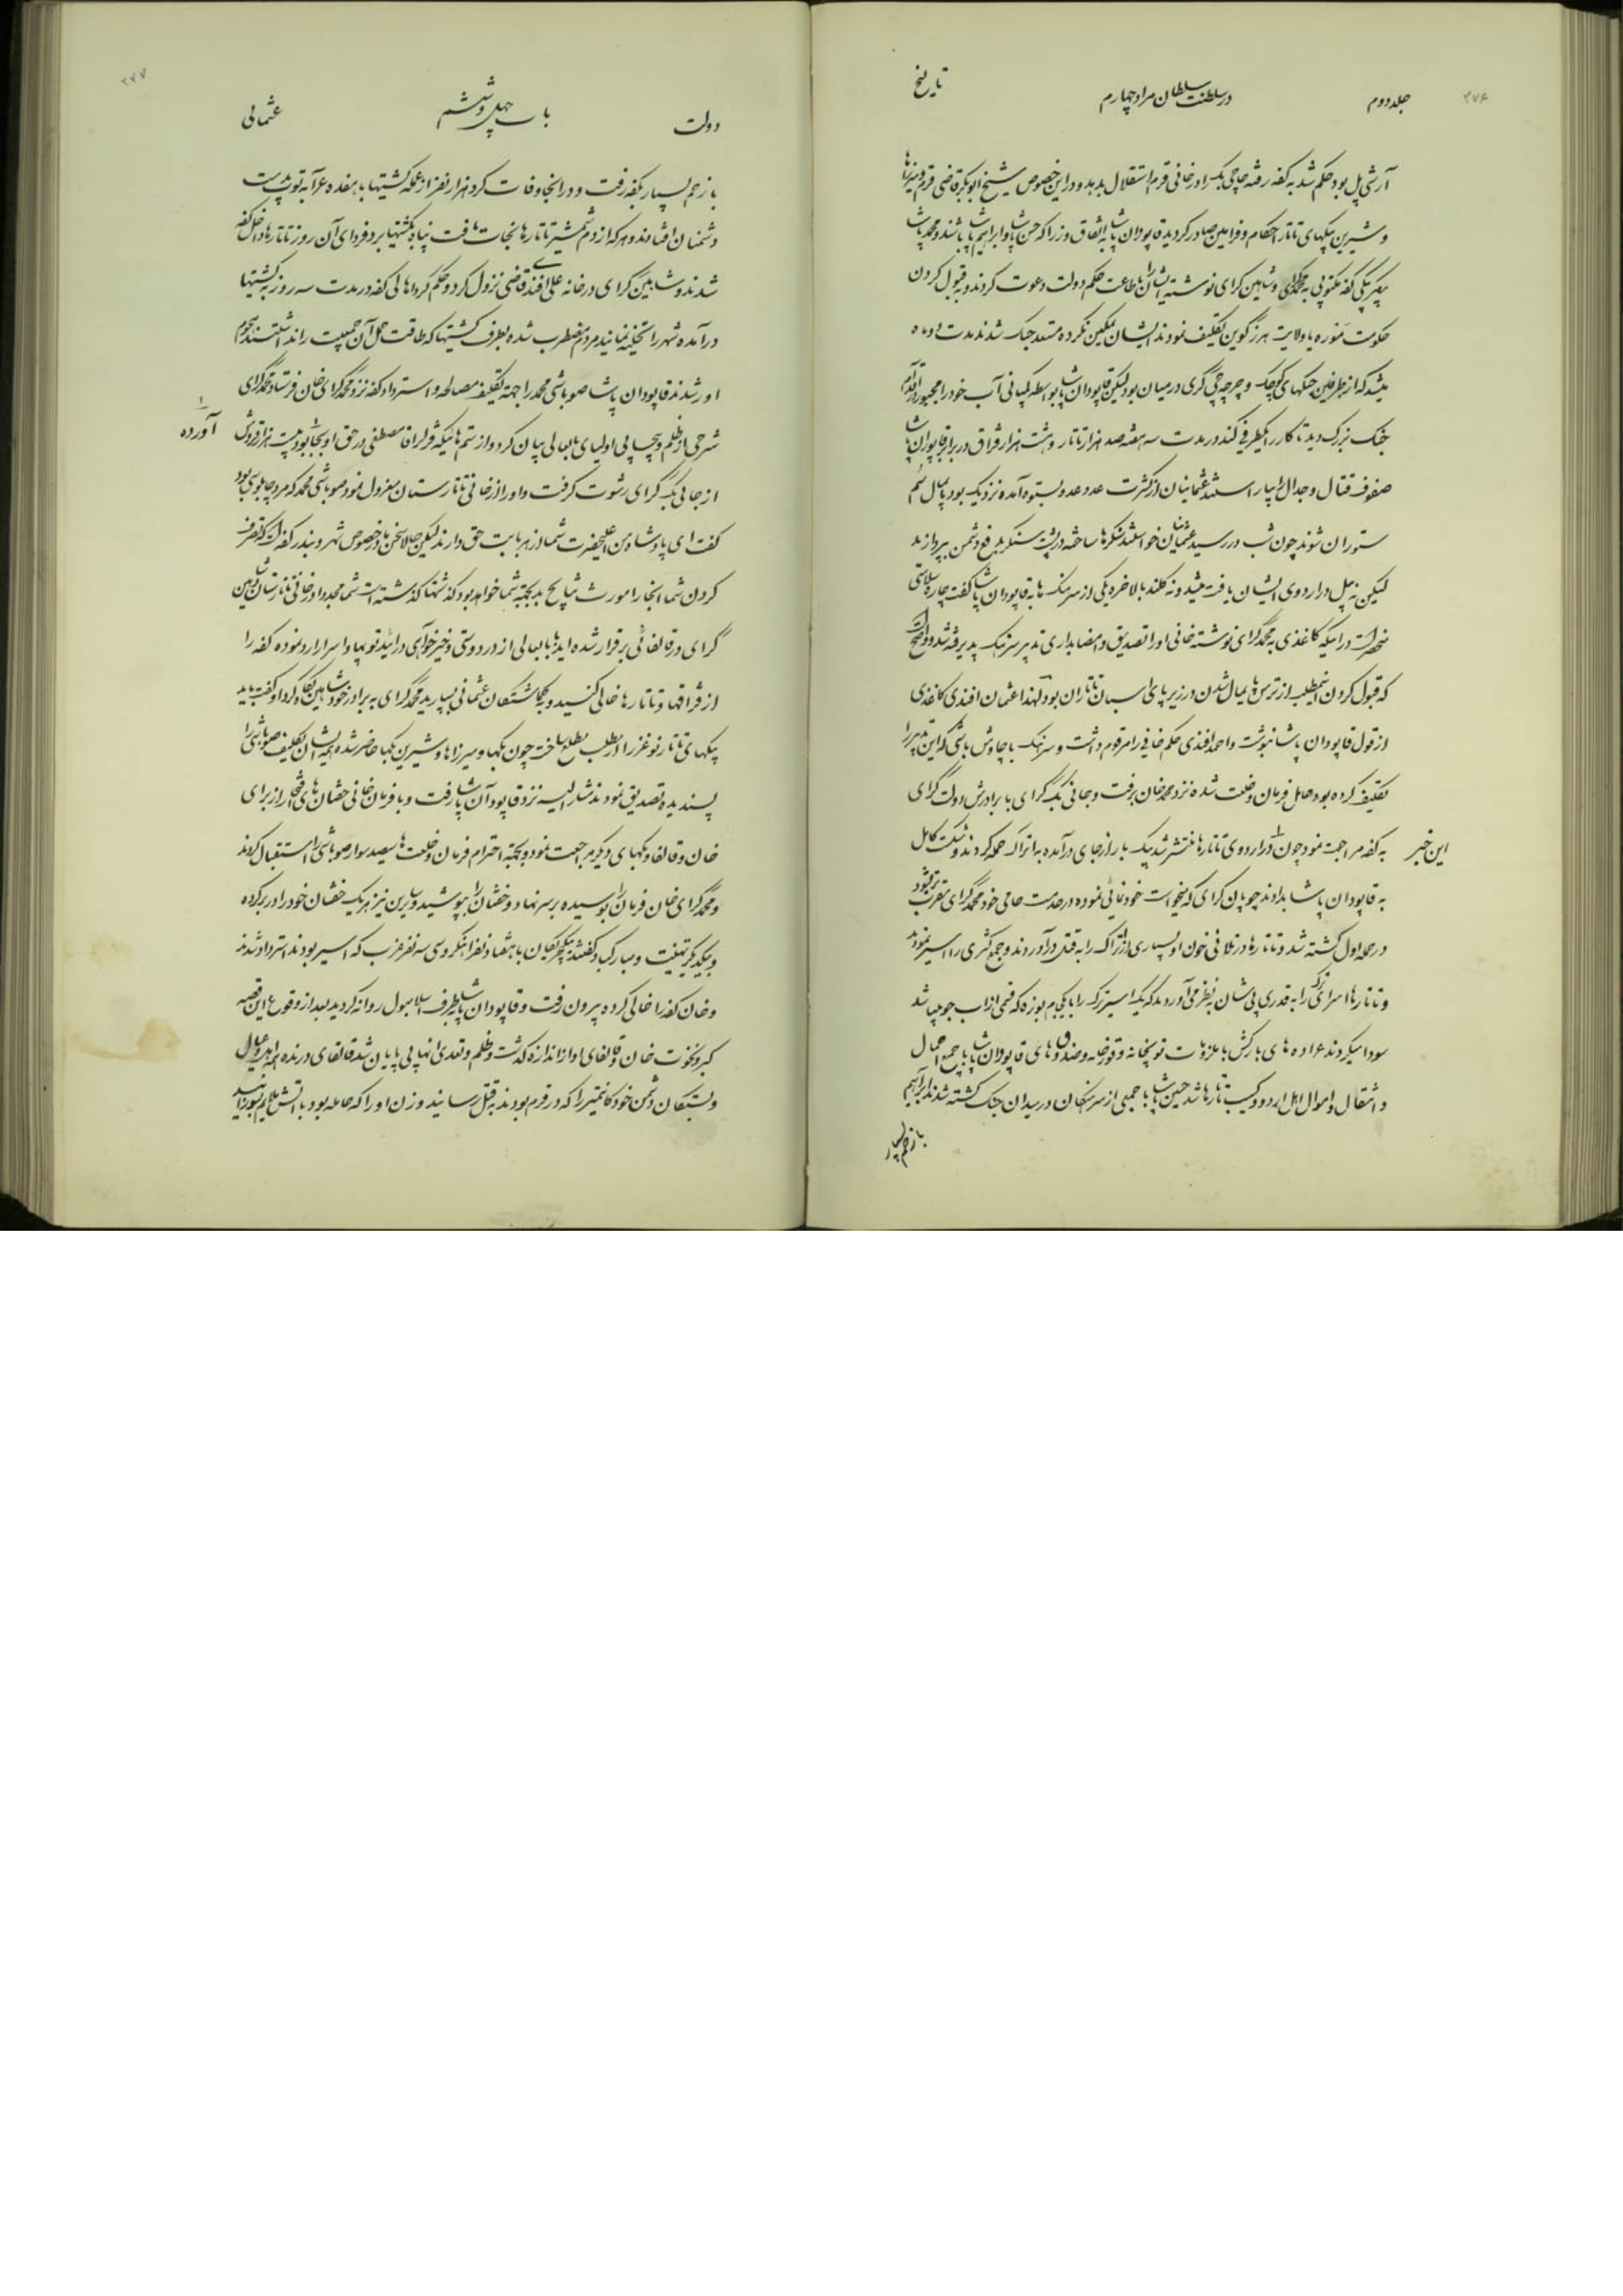 ۲۷۶
جلد دوم
در سلطنت سلطان مراد چهارم
تاریخ
آرشی پل بود حکم شد به کفه رفته جاجی بک را در خانی قرم استقلال بدهد و در این خصوص شیخ ابوبکر قاضی قرم و میرزاها
و شیرین بیکهای تاتار احکام و فرامین صادر کردید قاپودان پاشا به اتفاق وزرا که حسن پاشا و ابراهیم پاشا باشند و محمد پاشا
بیکلربیکی کفه مکتوبی به محمد کرای و شاهین کرای نوشته ایشان را باطاعت حکم دولت دعوت کردند و به قبول کردن
حکومت موره یا ولایت هرزگوین تکلیف نمودند ایشان تمکین نکرده مستعد جنک شدند مدت دو ماه
میشد که از طرفین جنکهای کوچک و چرخه‌چی گری در میان بود لیکن قاپودان پاشا بواسطه کمیابی آب خود را مجبور در اقدام
جنک بزرک دید تا کار را یکطرفی کند در مدت سه هفته صد هزار تاتار و هشت هزار قزاق در برابر قاپودان پاشا
صفوف قتال و جدال را بیاراستند عثمانیان از کثرت عدد عدو بستوه آمده نزدیک بود پامال سم
ستوران شوند چون شب در رسید عثمانیان خواستند سنکرها ساخته در پشت سنکر بدفع دشمن بپردازند
لیکن نه بیل در اردوی ایشان یافت میشد و نه کلند بالاخره یکی از سرهنک ها به قاپودان پاشا گفت چاره سلامتی
منحصر است در اینکه کاغذی به محمد گرای نوشته خانی او را تصدیق و امضا بداری تدبیر سرهنک پذیرفته شد و واضح است
که قبول کردن این مطلب از ترس پایمال شدن در زیر پای اسبان تاتاران بود لهذا عثمان افندی کاغذی
از قول قاپودان پاشا نوشت و احمد افندی حکم خانی را مرقوم داشت و سرهنک با چاوش باشی که این تدبیر را
تکلیف کرده بود حامل فرمان و خلعت شده نزد محمد خان برفت و جانی بک گرای با برادرش دولت گرای
به کفه مراجعت نمود چون در اردوی تاتارها منتشر شد بیک بار از جای درآمده به اتراک حمله کردند و شکست کامل
این خبر
به قاپودان پاشا بدادند چوپان کرای که میخواست خودنمائی نموده در خدمت حامی خود محمد گرای مقرب‌تر شود
در حمله اول کشته شد و تاتارها در تلافی خون او بسیاری از اتراک را به قتل درآوردند و جمع کثیری را اسیر نمودند
و تاتارها اسرای ترک را به قدری پی شان به نظر می‌آوردند که یک اسیر ترک را با یک جام بوزه که قسمی از آب جو میباشد
سودا میکردند عراده های بارکش با ملزومات توپخانه و قورخانه و صندوق های قاپودان پاشا با جمیع احمال
و اثقال و اموال اهل اردو و کسیب تاتارها شد حسین پاشا با جمیعی از سرهنکان در میدان جنک کشته شدند ابراهیم
با زخم بسیار
۲۷۷
دولت
باب چهل و ششم
عثمانی
با زخم بسیار بکفه رفت و در انجا وفات کرد هزار نفر از عمله کشتیها با هفده عرابه توپ بدست
دشمنان افتادند و هر که از دم شمشیر تاتارها نجات یافت پناه بکشتیها برد فردای آن روز تاتارها داخل کفه
شدند و شاهین گرای در خانه علی افندی قاضی نزول کرد و حکم کرد اهالی کفه در مدت سه روز به کشتیها
درآمده شهر را تخلیه نمایند مردم مضطرب شده بطرف کشتیها که طاقت حمل آن جمعیت را نداشتند هجوم
آور شدند قاپودان پاشا صوباشی محمد را جهته تکلیف مصالحه و استرداد کفه نزد محمد گرای خان فرستاد محمد گرای
شرحی از ظلم و بیحسابی اولیای بابعالی بیان کرد و از ستم هائیکه قزلر اقا مصطفی در حق او بجا بود بیست هزار قروش
آورده
از جانی بک گرای رشوت گرفت و او را از خانی تاتارستان معزول نمود صوباشی محمد که مرد چاپلوسی بود
گفت ای پادشاه من اعلیحضرت شما از هر بابت حق دارند لیکن حالا سخن ما در خصوص شهر و بندر کفه است که تصرف
کردن شما انجا را مورث نتایج بد بجهته شما خواهد بود گذشتها گذشته است شما مجددا در خانی تاتارستان و شاهین
گرای در قالغائی برقرار شده اید با بابعالی از در دوستی و خیرخواهی درآئید توپها و اسرا را رد نموده کفه را
از قزاقها و تاتارها خالی کنید و به گماشتگان عثمانی بسپارید محمد گرای به برادر خود شاهین نگاه کرد او گفت باید
بیکهای تاتار نوغز را از مطلب مطلع ساخت چون بکها و میرزاها و شیرین بکها حاضر شده ایشان تکلیف صوباشی را
پسندیده تصدیق نمودند مشارالیه نزد قاپودان پاشا رفت و با فرمان خانی خفتان های فخار از برای
خان و قالغا و بکهای دیگر مراجعت نمود و بجهته احترام فرمان و خلعت ها سیصد سوار صوباشی را استقبال کردند
و محمد گرای خان فرمان را بوسیده بر سر نهاد و خفتان را بپوشید و سایرین نیز هر یک خفتان خود را در بر کرده
و بیکدیگر تهنیت و مبارکباد گفتند با هفتاد نفر انکروسی سه نفر عرب که اسیر بودند استرداد شدند
و خان کفه را خالی کرده بیرون رفت و قاپودان پاشا بطرف اسلامبول روانه گردید بعد از وقوع این قصه
کبر و نخوت خان و قالغای او از اندازه گذشت و ظلم و تعدی انها بی پایان شد قالغای درنده همه اهل و عیال
و بستگان دشمن خود کانتمیر را که در قرم بودند به قتل رسانید و زن او را که حامله بود با اتش ملایم بسوزانید